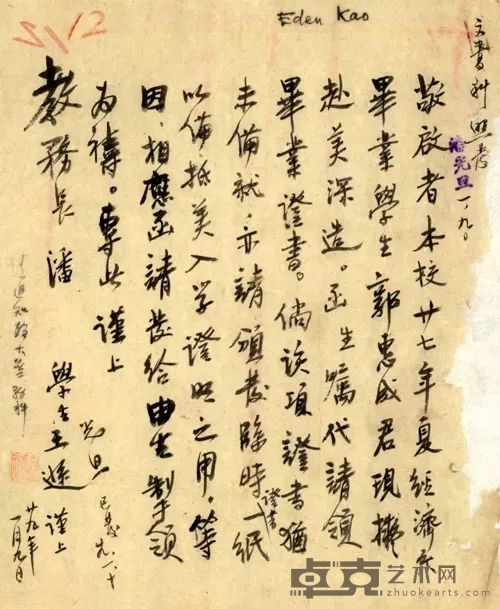 Eden Kao
5/12
文書科照發
潘光旦 一、九、
敬啟者本校廿七年夏經濟系
畢業學生郭惠成君現擬
赴美深造。函生囑代請領
畢業證書。倘該項證書猶
未備就，亦請頒發臨時證書一紙
以備抵美入學證明之用。等
因，相應函請發給由生制領
為禱。專此 謹上
教務長潘
光旦
學生王遜 謹上
廿九年
一月九日
已發
卓克艺术网
www.zhuokearts.com